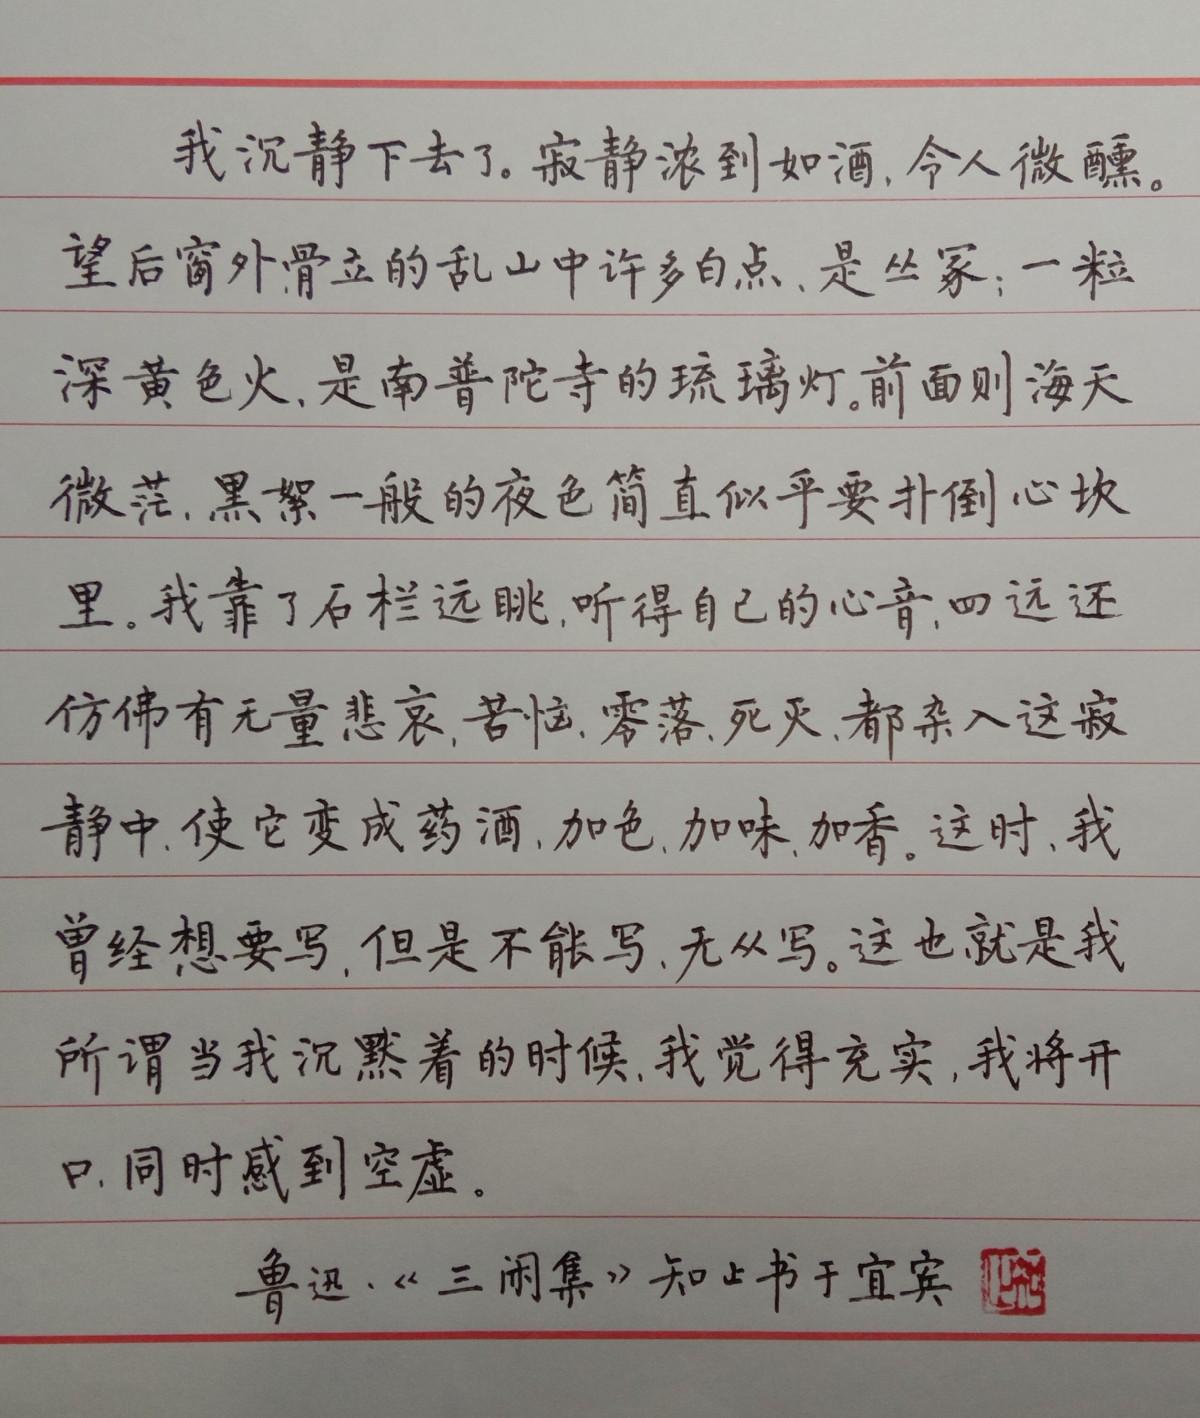 我沉静下去了。寂静浓到如酒，令人微醺。
望后窗外骨立的乱山中许多白点，是丛冢；一粒
深黄色火，是南普陀寺的琉璃灯。前面则海天
微茫，黑絮一般的夜色简直似乎要扑倒心坎
里。我靠了石栏远眺，听得自己的心音，四远还
仿佛有无量悲哀，苦恼，零落，死灭，都杂入这寂
静中，使它变成药酒，加色，加味，加香。这时，我
曾经想要写，但是不能写，无从写。这也就是我
所谓当我沉默着的时候，我觉得充实，我将开
口，同时感到空虚。
鲁迅·《三闲集》知止书于宜宾